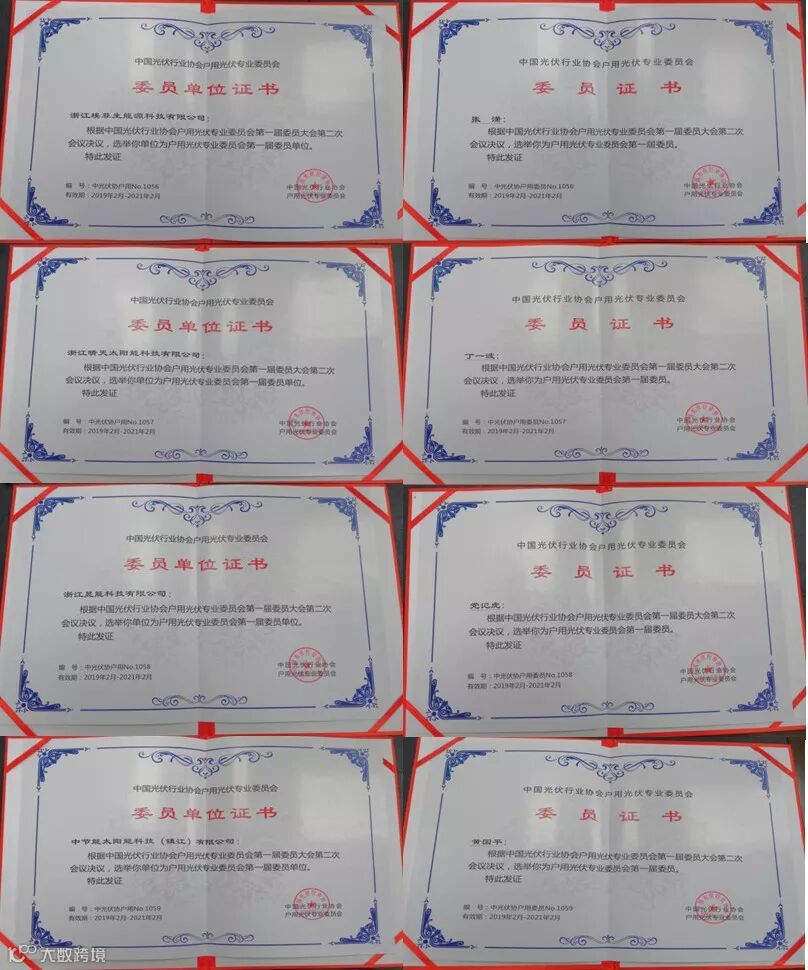 中国光伏行业协会户用光伏专业委员会
委员单位证书
浙江埃菲生能源科技有限公司：
根据中国光伏行业协会户用光伏专业委员会第一届委员大会第二次
会议决议，选举你单位为户用光伏专业委员会第一届委员单位。
特此发证
编 号：中光伏协户用No.1056
有效期：2019年2月-2021年2月
中国光伏行业协会
户用光伏专业委员会
中国光伏行业协会户用光伏专业委员会
委 员 证 书
张 潇：
根据中国光伏行业协会户用光伏专业委员会第一届委员大会第二次
会议决议，选举你为户用光伏专业委员会第一届委员。
特此发证
编 号：中光伏协户用委员No.1056
有效期：2019年2月-2021年2月
中国光伏行业协会
户用光伏专业委员会
中国光伏行业协会户用光伏专业委员会
委员单位证书
浙江晴天太阳能科技有限公司：
根据中国光伏行业协会户用光伏专业委员会第一届委员大会第二次
会议决议，选举你单位为户用光伏专业委员会第一届委员单位。
特此发证
编 号：中光伏协户用No.1057
有效期：2019年2月-2021年2月
中国光伏行业协会
户用光伏专业委员会
中国光伏行业协会户用光伏专业委员会
委 员 证 书
丁一波：
根据中国光伏行业协会户用光伏专业委员会第一届委员大会第二次
会议决议，选举你为户用光伏专业委员会第一届委员。
特此发证
编 号：中光伏协户用委员No.1057
有效期：2019年2月-2021年2月
中国光伏行业协会
户用光伏专业委员会
中国光伏行业协会户用光伏专业委员会
委员单位证书
浙江昱能科技有限公司：
根据中国光伏行业协会户用光伏专业委员会第一届委员大会第二次
会议决议，选举你单位为户用光伏专业委员会第一届委员单位。
特此发证
编 号：中光伏协户用No.1058
有效期：2019年2月-2021年2月
中国光伏行业协会
户用光伏专业委员会
中国光伏行业协会户用光伏专业委员会
委 员 证 书
党记虎：
根据中国光伏行业协会户用光伏专业委员会第一届委员大会第二次
会议决议，选举你为户用光伏专业委员会第一届委员。
特此发证
编 号：中光伏协户用委员No.1058
有效期：2019年2月-2021年2月
中国光伏行业协会
户用光伏专业委员会
中国光伏行业协会户用光伏专业委员会
委员单位证书
中节能太阳能科技（镇江）有限公司：
根据中国光伏行业协会户用光伏专业委员会第一届委员大会第二次
会议决议，选举你单位为户用光伏专业委员会第一届委员单位。
特此发证
编 号：中光伏协户用No.1059
有效期：2019年2月-2021年2月
中国光伏行业协会
户用光伏专业委员会
中国光伏行业协会户用光伏专业委员会
委 员 证 书
黄国平：
根据中国光伏行业协会户用光伏专业委员会第一届委员大会第二次
会议决议，选举你为户用光伏专业委员会第一届委员。
特此发证
编 号：中光伏协户用委员No.1059
有效期：2019年2月-2021年2月
中国光伏行业协会
户用光伏专业委员会
大数跨境